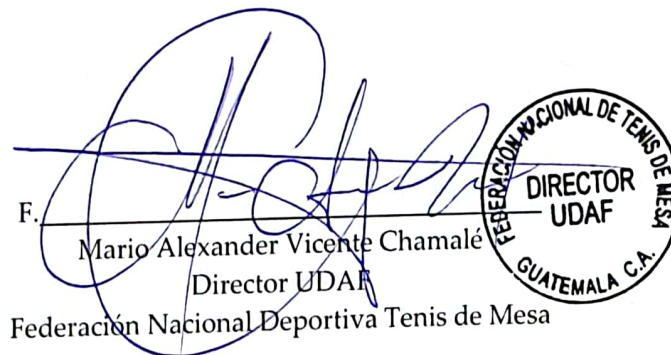 F.
Mario Alexander Vicente Chamalé
Director UDAF
Federación Nacional Deportiva Tenis de Mesa
FEDERACIÓN NACIONAL DE TENIS DE MESA
DIRECTOR
UDAF
GUATEMALA C.A.